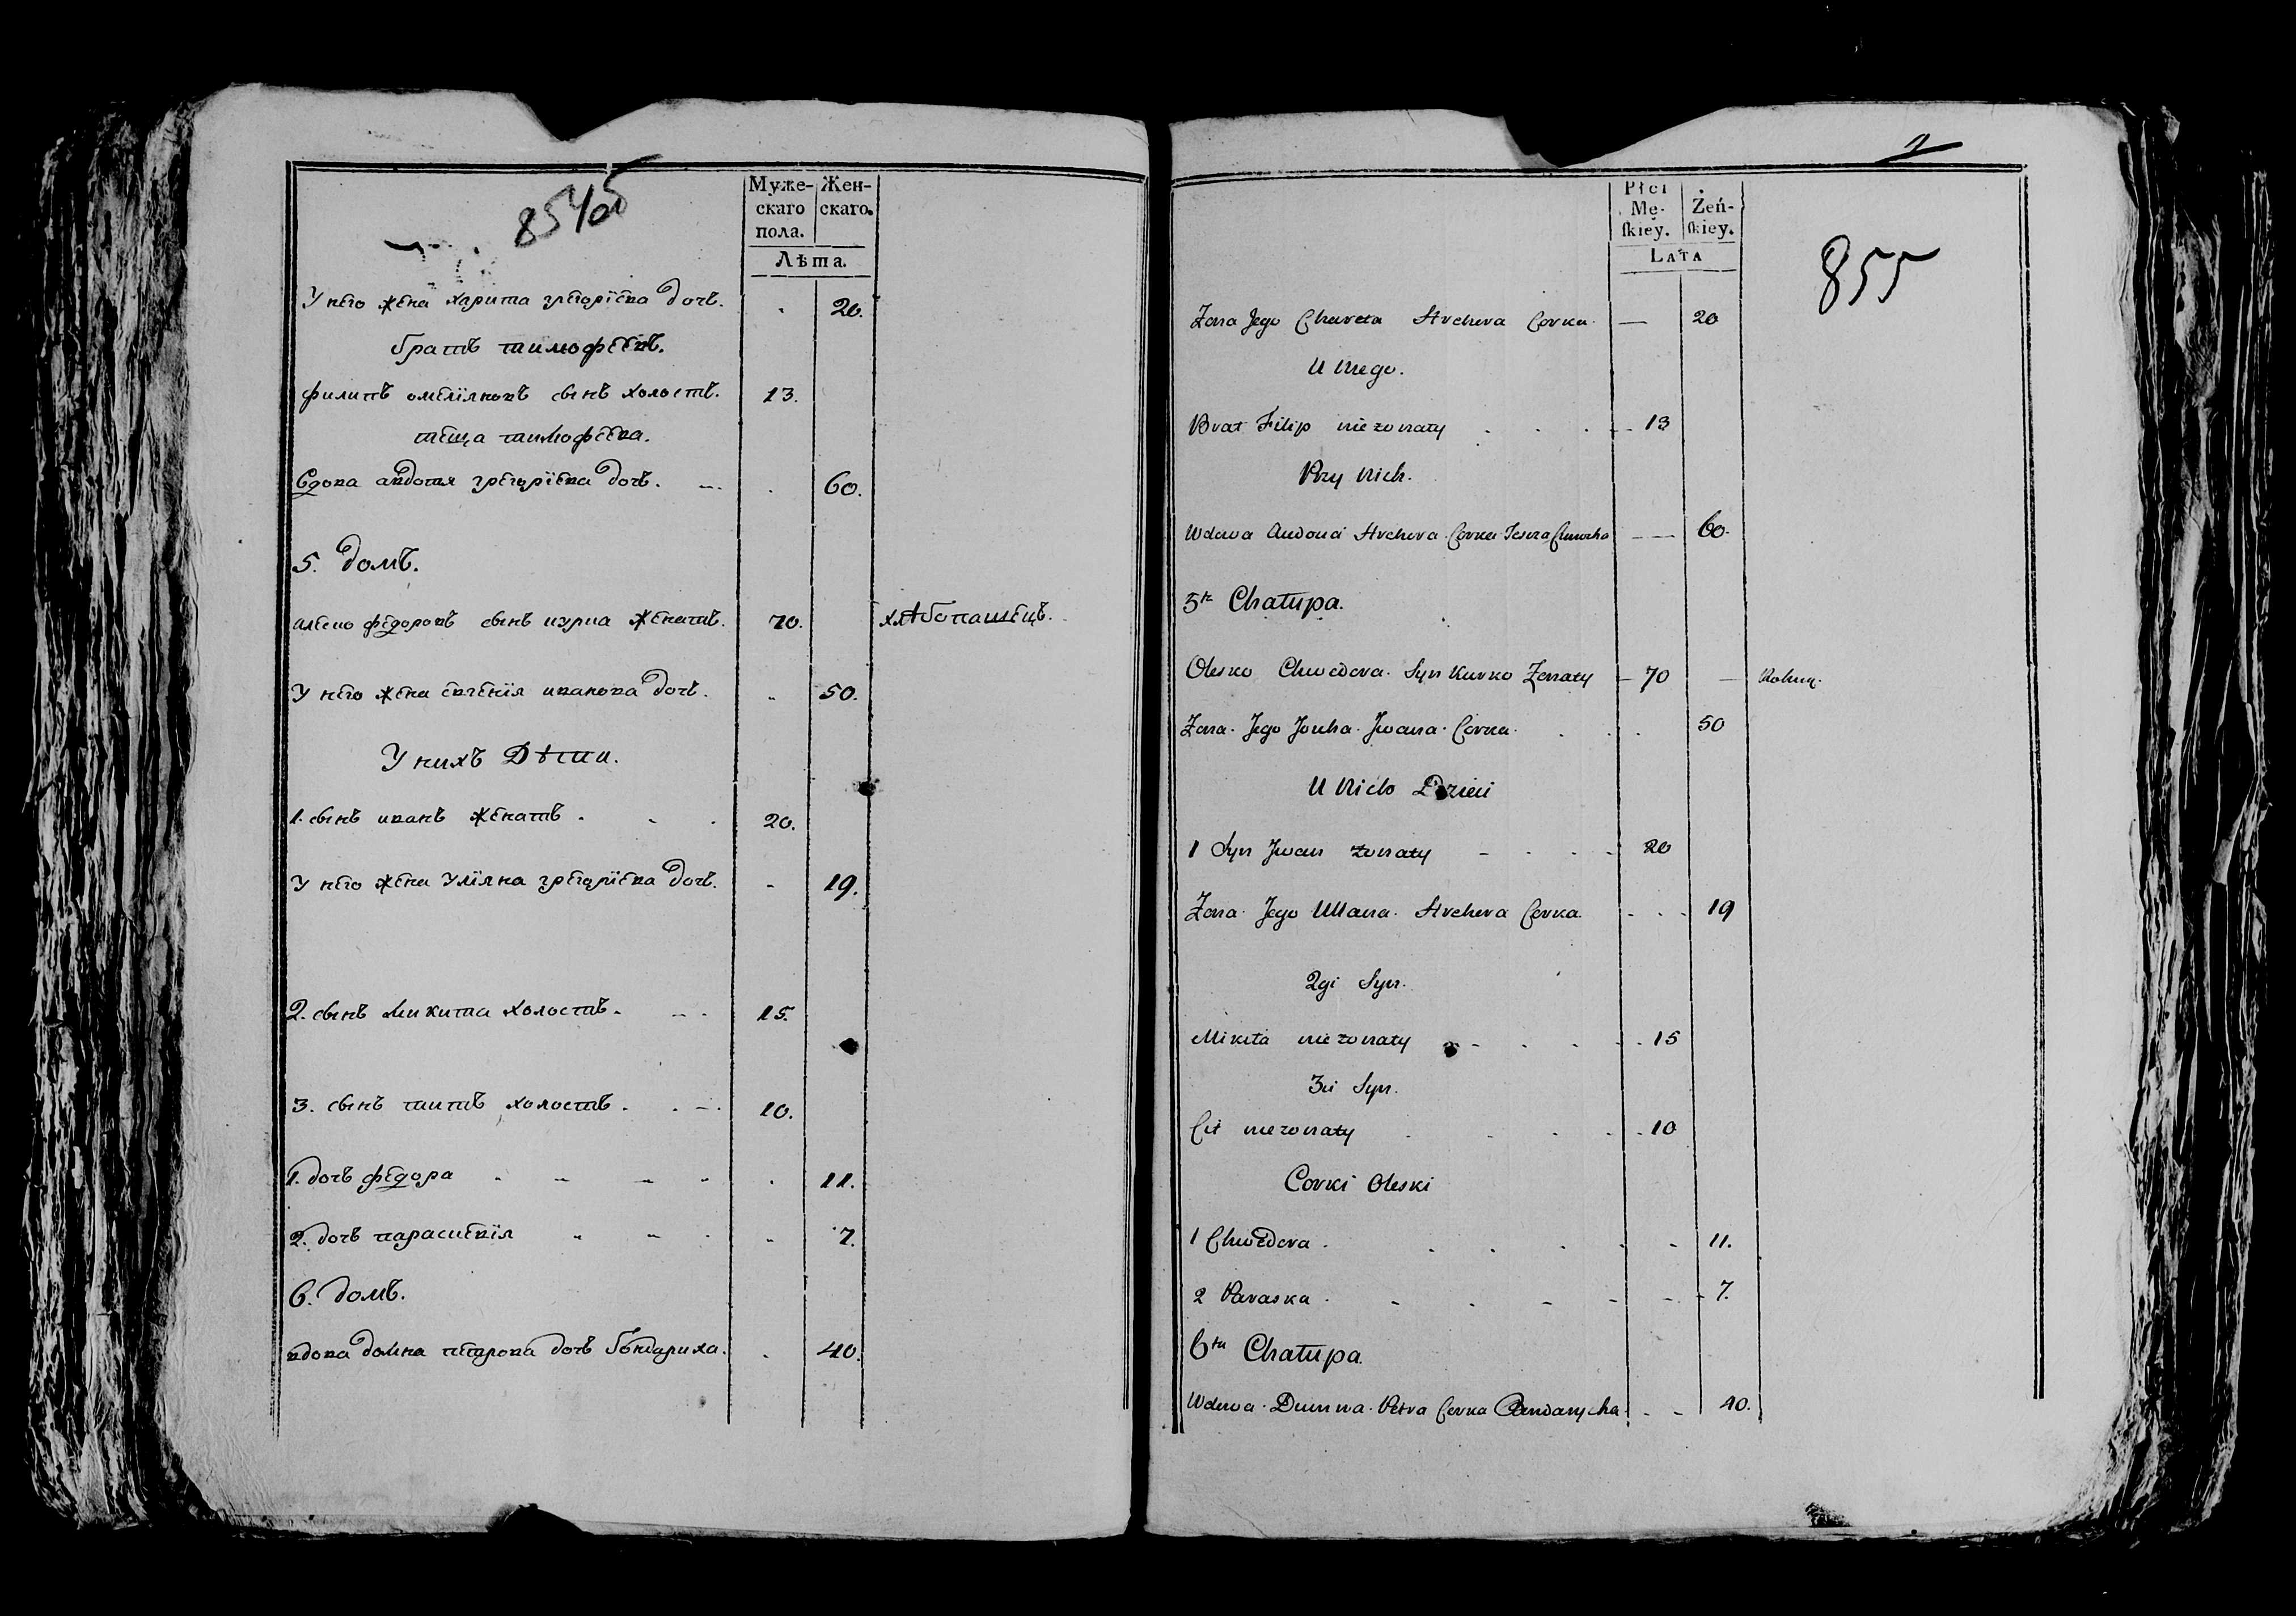 854об
Муже- Жен-
скаго скаго.
пола.
Лѣта.
У него жена харита григоріева дочь. 20.
братъ тимофѣевъ.
филипъ омеліяновъ сынъ холостъ. 13.
теща тимофѣева.
вдова авдотя григоріева дочь. 60.
5. домъ.
алеско федоровъ сынъ курка женатъ. 70. хлѣбопашецъ.
У него жена евгенія иванова дочь. 50.
У нихъ Дѣти.
1. сынъ иванъ женатъ. 20.
У него жена Уліяна григоріева дочь. 19.
2. сынъ микита холостъ. 15.
3. сынъ титъ холостъ. 10.
1. дочь федора 11.
2. дочь параскевія 7.
6. домъ.
вдова домна петрова дочь бондариха. 40.
2
Płci
Mę- Żeń-
ſkiey. ſkiey.
LATA
855
Zona Jego Chareta Hrehora Corka. — 20
U niego.
Brat Filip niezonaty 13
Przy Nich.
Wdowa Audocia Hrehora Corka 60.
5ta Chałupa.
Olesko Chwedora Syn Kurko Zonaty 70 — Rolnik.
Zona Jego Jouha Jwana Corka. 50
U Nich Dzieci
1 Syn Jwan zonaty 20
Zona Jego Ullana Hrehora Corka. 19
2gi Syn.
Mikita niezonaty 15
3ci Syn.
Cit niezonaty 10
Corki Oleski
1 Chwedora 11.
2 Paraska 7.
6ta Chałupa.
Wdowa Dumna Petra Corka Bandarycha 40.